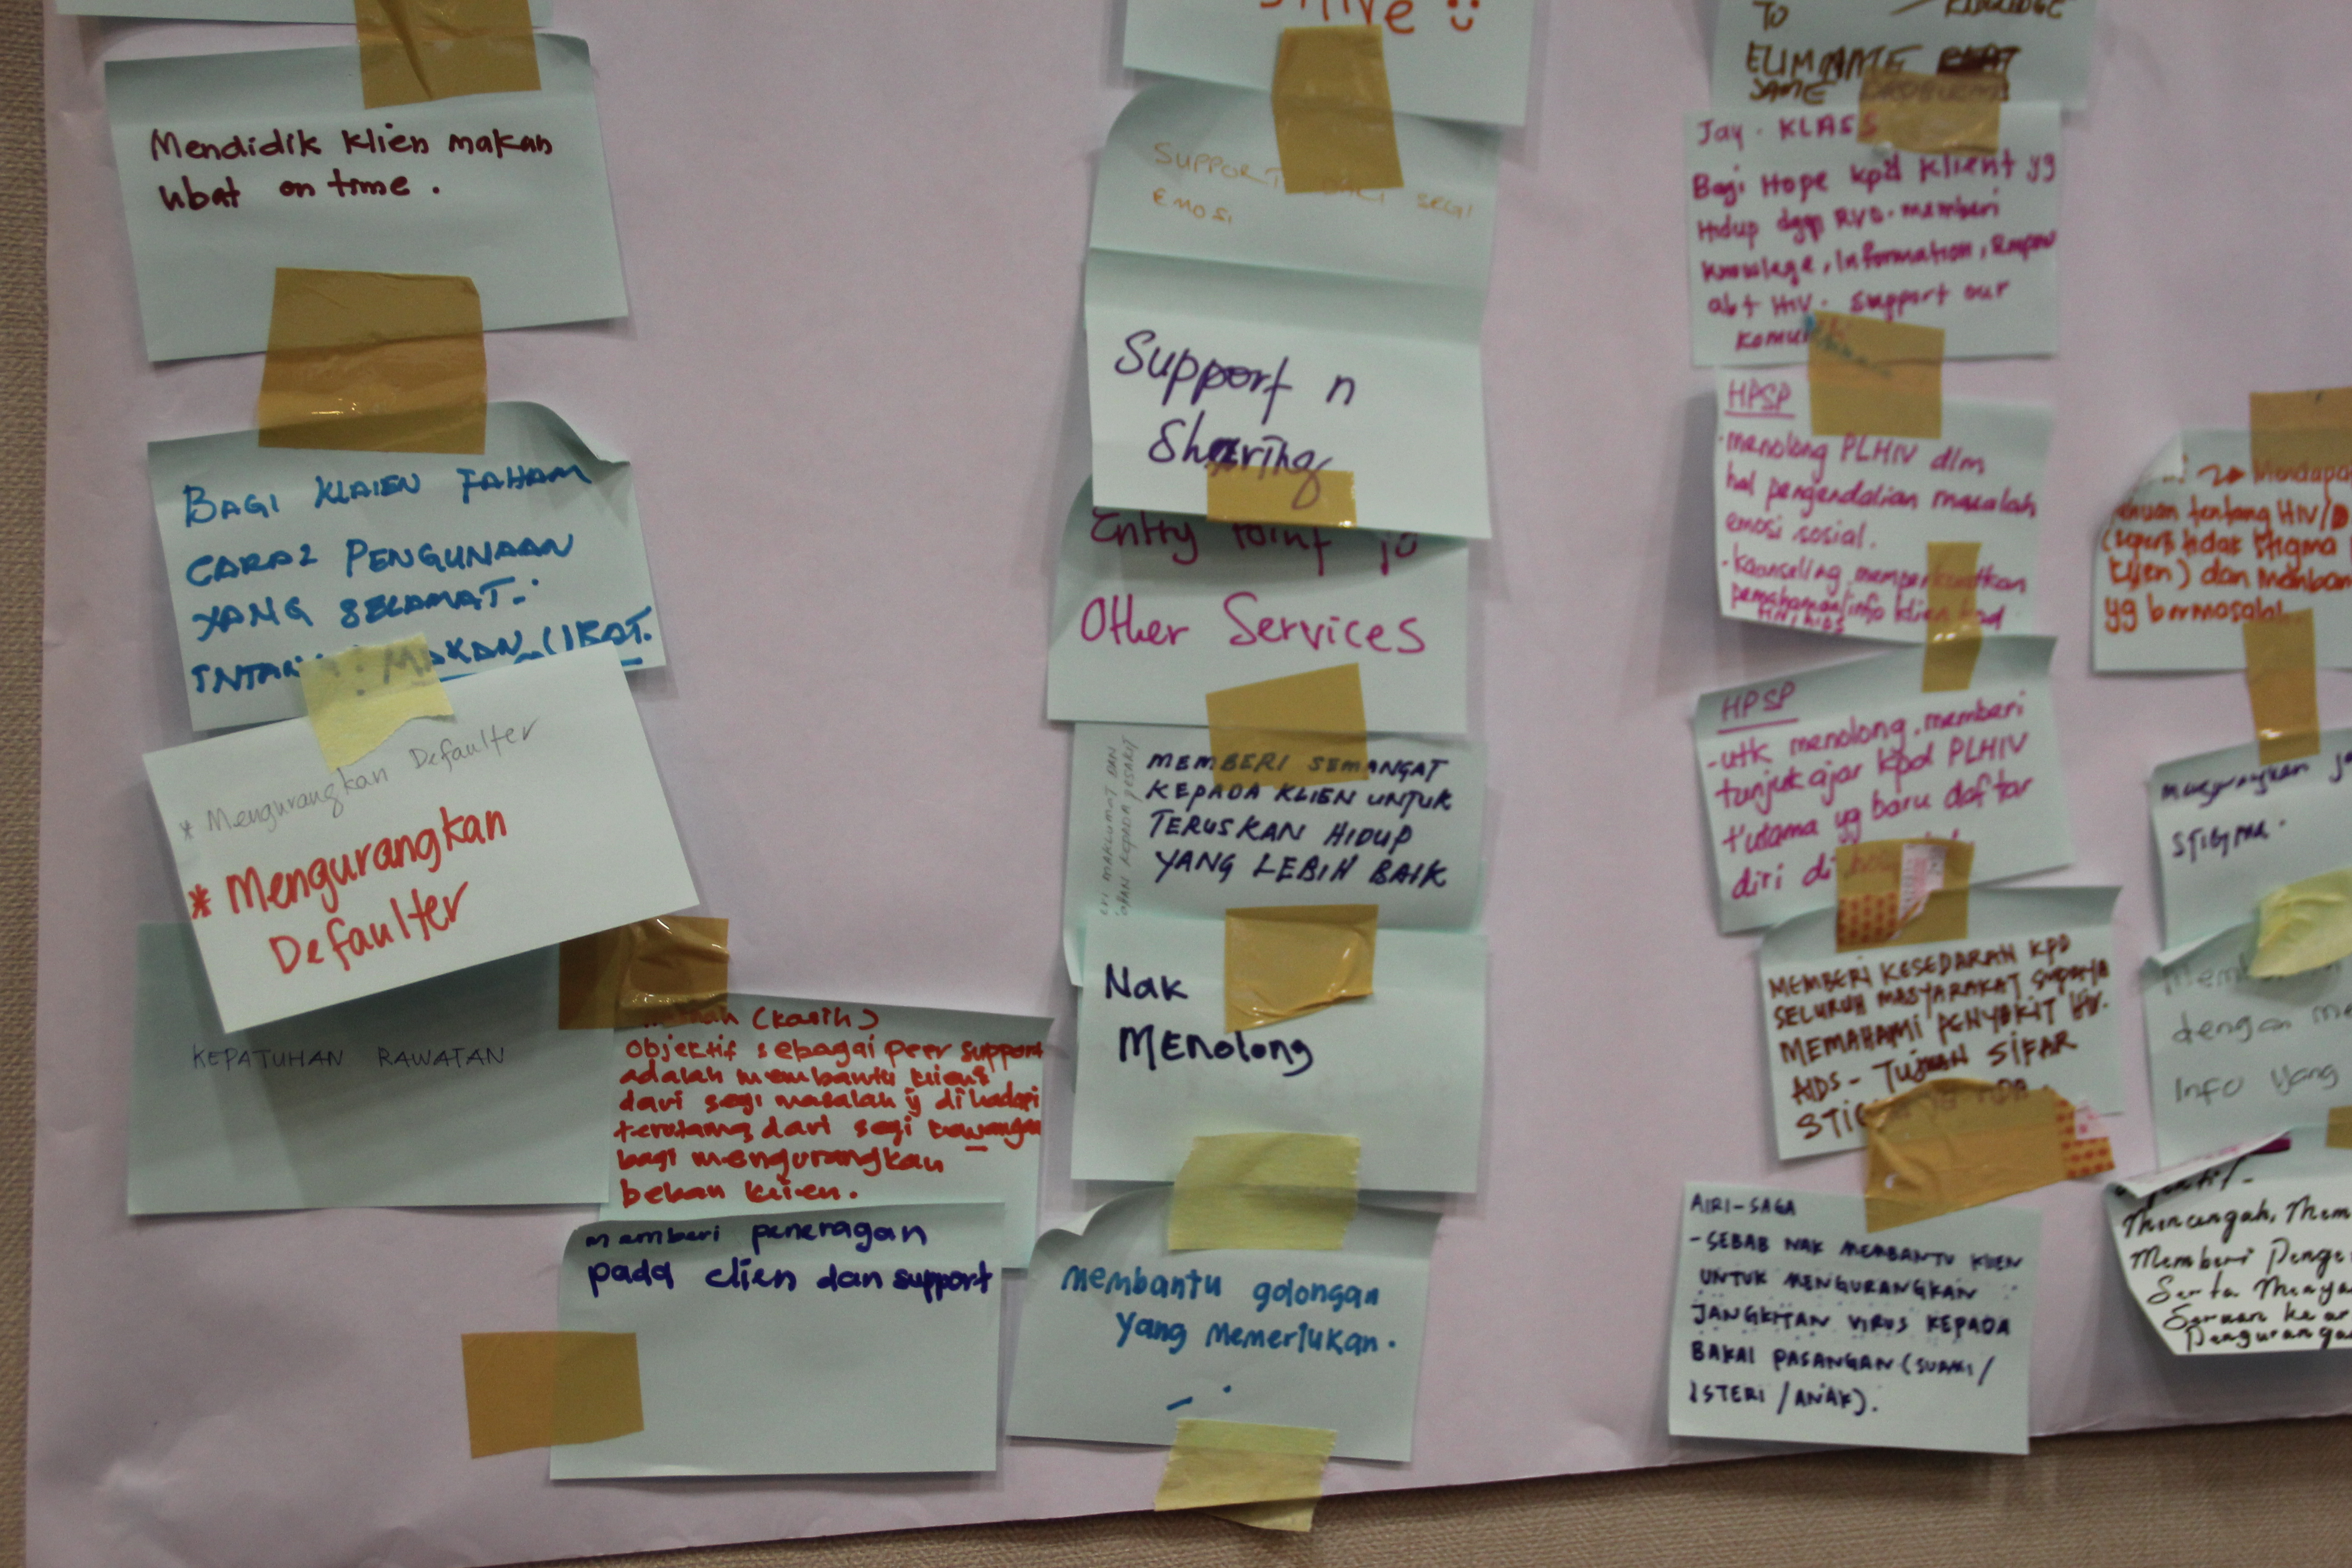 Mendidik klien makan
Ubat on time.
BAGI KLAIEN FAHAM
CARA2 PENGUNAAN
YANG SELAMAT.
MAKAN UBAT.
* Mengurangkan Defaulter
* Mengurangkan
Defaulter
KEPATUHAN RAWATAN
(Kasih)
Objektif sebagai peer support
adalah membantu klien
dari segi masalah y dihadapi
terutama dari segi
bagi mengurangkan
beban klien.
memberi peneragan
pada clien dan support
SUPPORT DARI SEGI
EMOSI
Support n
Sharing
Entry Point to
Other Services
MEMBERI SEMANGAT
KEPADA KLIEN UNTUK
TERUSKAN HIDUP
YANG LEBIH BAIK
MAKLUMAT DAN
KEPADA PESAKIT
Nak
MENolong
membantu golongan
yang memerlukan.
TO
ELIMINATE
SAME PROBLEMS
Jay. KLASS
Bagi Hope kpd klient yg
Hidup dgn RVD. memberi
knowlege, Information,
abt HIV. Support our
HPSP
- menolong PLHIV dlm
hal pengendalian masalah
emosi sosial.
- kaunseling, memperkuatkan
pemahaman/info klien
HIV/AIDS
HPSP
- utk menolong, memberi
tunjuk ajar kpd PLHIV
tutama yg baru daftar
diri di
MEMBERI KESEDARAN KPD
SELURUH MASYARAKAT supaya
MEMAHAMI PENYAKIT HIV.
AIDS - TUJUAN SIFAR
AIRI-SAGA
- SEBAB NAK MEMBANTU KLIEN
UNTUK MENGURANGKAN
JANGKITAN VIRUS KEPADA
BAKAL PASANGAN (SUAMI/
ISTERI/ANAK).
tentang HIV/
(seperti tidak stigma
klien) dan
yg bermasalah.
STIGMA.
dengan
Info yang
Mencegah,
Memberi
Serta